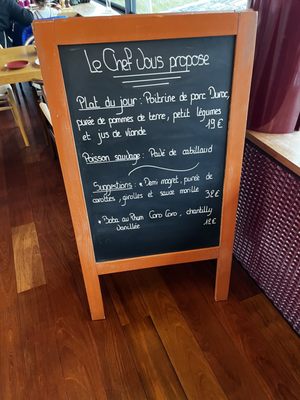 Le Chef Vous propose
Plat du jour : Poitrine de porc Duroc,
purée de pommes de terre, petit légumes
et jus de viande 19€
Poisson sauvage : Pavé de cabillaud
Suggestions : * Demi magret, purée de
carottes, girolles et sauce morille
32€
* Baba au Rhum Coro Coro, chantilly
vanillée 12€